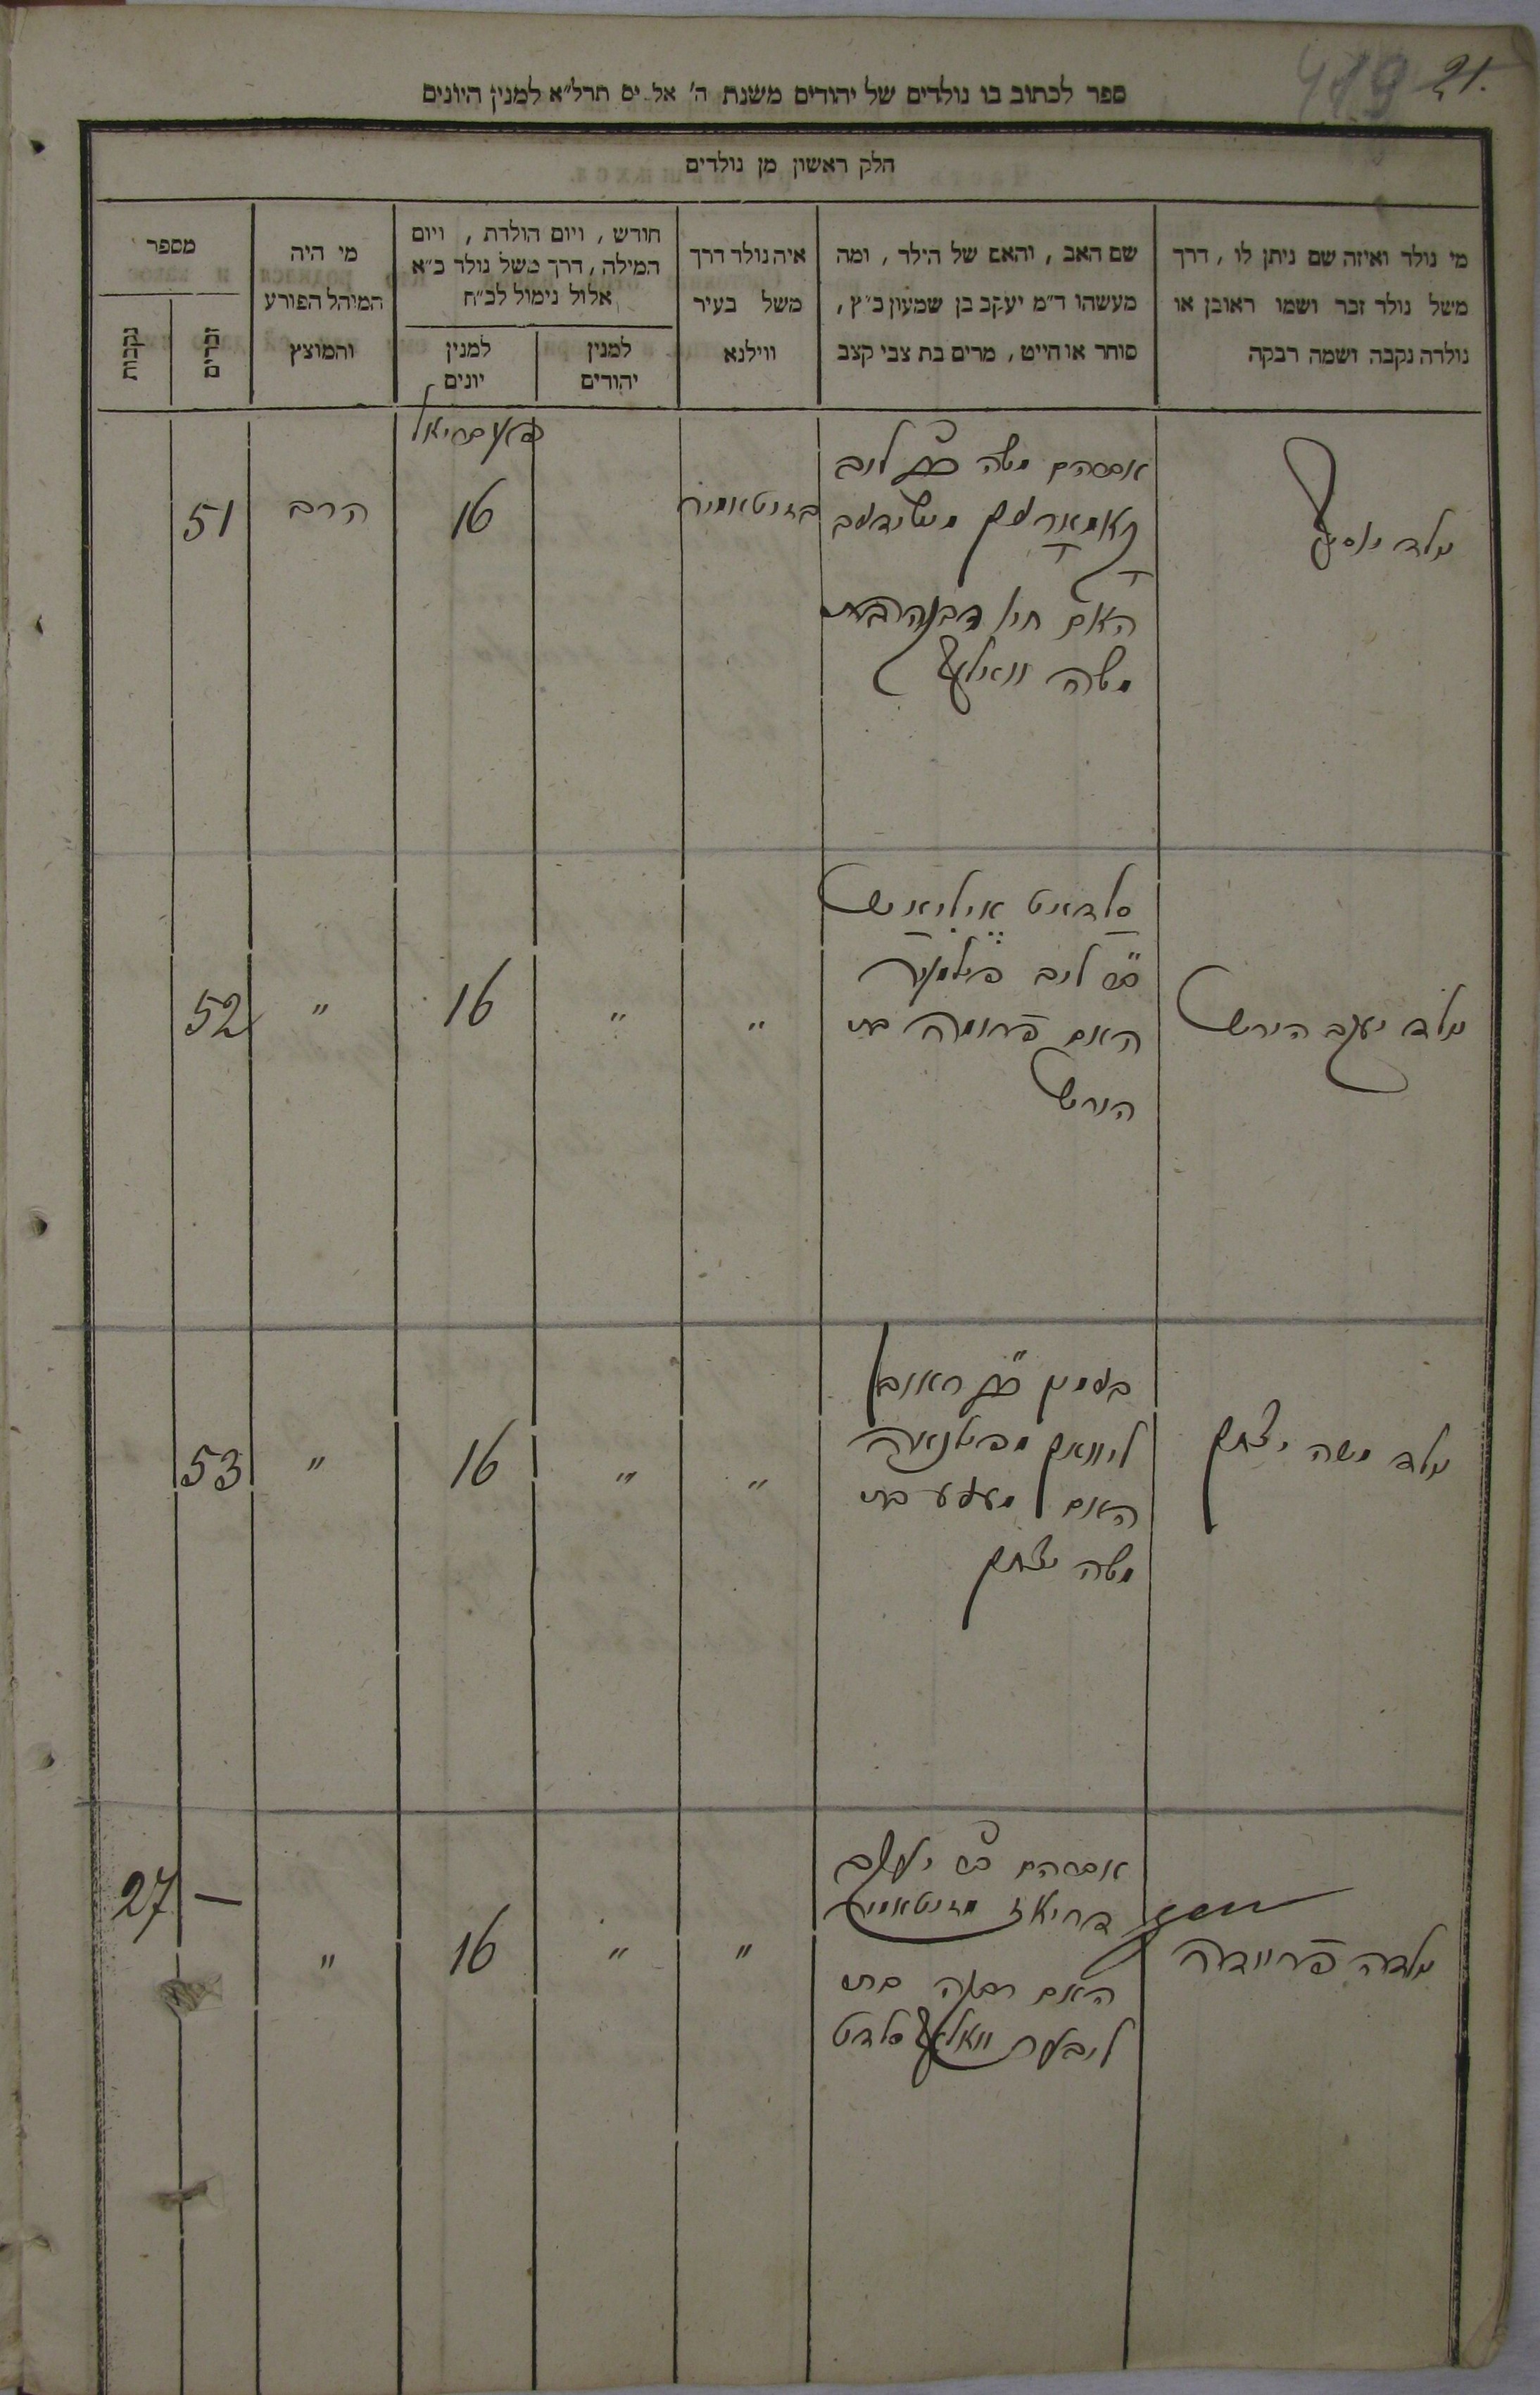 21.
ספר לכתוב בו נולדים של יהודים משנת ה' אל-ים תרל"א למנין היונים
חלק ראשון מן נולדים
מי נולד ואיזה שם ניתן לו, דרך
משל נולד זכר ושמו ראובן או
נולדה נקבה ושמה רבקה
שם האב, והאם של הילד, ומה
מעשהו ד"מ יעקב בן שמעון כ"ץ,
סוחר או חייט, מרים בת צבי קצב
איה נולד דרך
משל בעיר
ווילנא
חודש, ויום הולדת, ויום
המילה, דרך משל נולד כ"א
אלול נימול לכ"ח
למנין
יהודים
למנין
יונים
מי היה
המיהל הפורע
והמוצץ
מספר
זכרים
נקבות
נולד יוסף
אברהם משה ליב
האם חיה בת
משה וואלף
בזיטאמיר
16
הרב
51
נולד יעקב הירש
סלדאט
ליב
האם פרומה בת
הירש
"
"
16
"
52
נולד משה יצחק
ראובן
האם בת
משה יצחק
"
"
16
"
53
נולדה פריידה
אברהם יעקב
מזיטאמיר
האם רבקה בת
ליבער וואלף סלדט
"
"
16
"
—
27